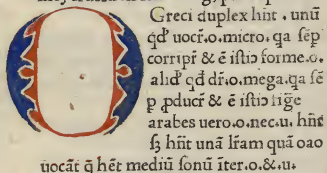 Greci duplex hñt . unũ
qď uocr̃.o.micro. qa sẽp
corripr̃ & ẽ istiɔ forme.o.
aliď qď dr̃.o.mega.qa sẽ
p ꝓducr̃ & ẽ istiɔ
arabes uero.o.nec.u. hñt
sꝫ hñt unã lr̃am quã oao
uocãt q̃ hẽt mediũ sonũ ĩter.o.&.u.